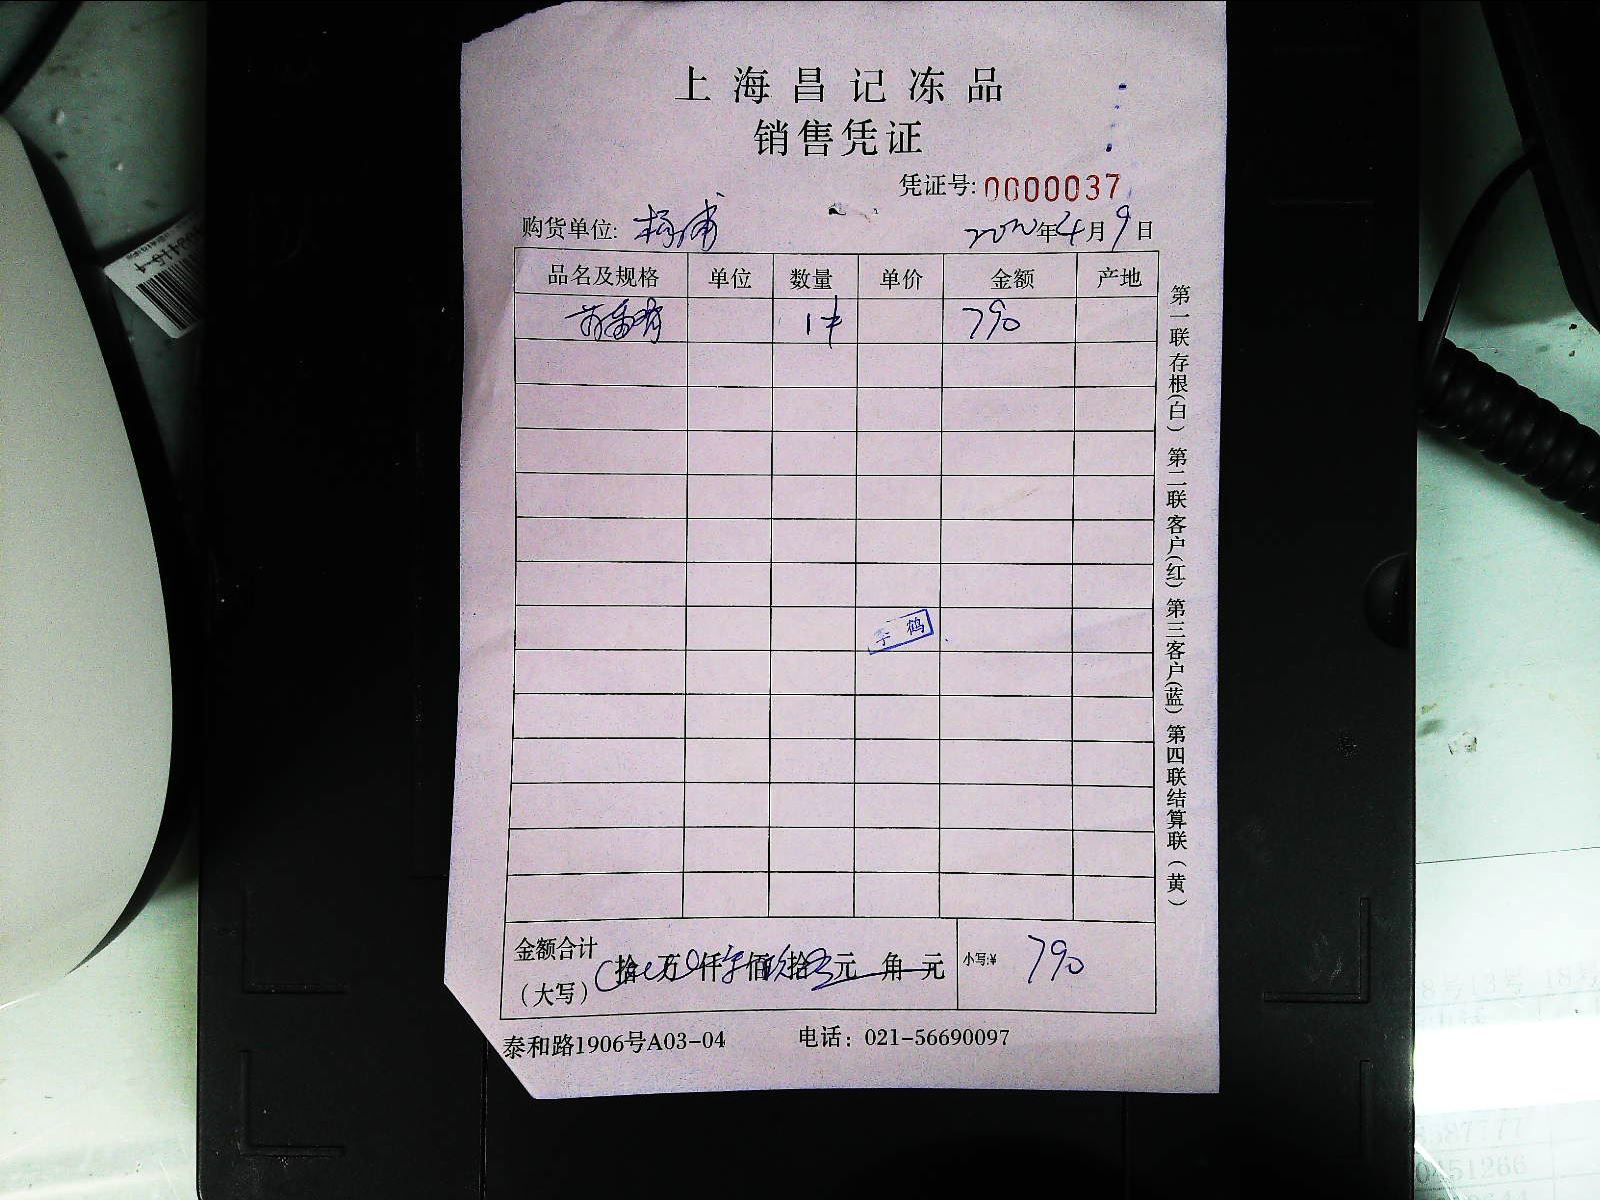 上海昌记冻品
销售凭证
凭证号:0000037
购货单位: 杨浦
年4月9日
品名及规格 单位 数量 单价 金额 产地
1件 790
鹤
金额合计
(大写) 拾 万 仟 佰 拾 元 角 元 小写:¥ 790
泰和路1906号A03-04 电话：021-56690097
第一联存根(白) 第二联客户(红) 第三客户(蓝) 第四联结算联(黄)